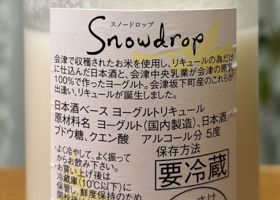 スノードロップ
Snowdrop
会津で収穫されたお米を使用し、リキュールの為だけ
に仕込んだ日本酒と、会津中央乳業が会津の原乳
100%で作ったヨーグルト。会津坂下町産のこれらが
出逢い、リキュールが誕生しました。
日本酒ベース ヨーグルトリキュール
原材料名 ヨーグルト(国内製造)、日本酒
ブドウ糖、クエン酸 アルコール分 5度
保存方法
要冷蔵
・よく冷やして、よく振って
からお飲み下さい。
・お買い上げ後は
冷蔵庫(10℃以下)に
保管し、鮮度保持の
ため